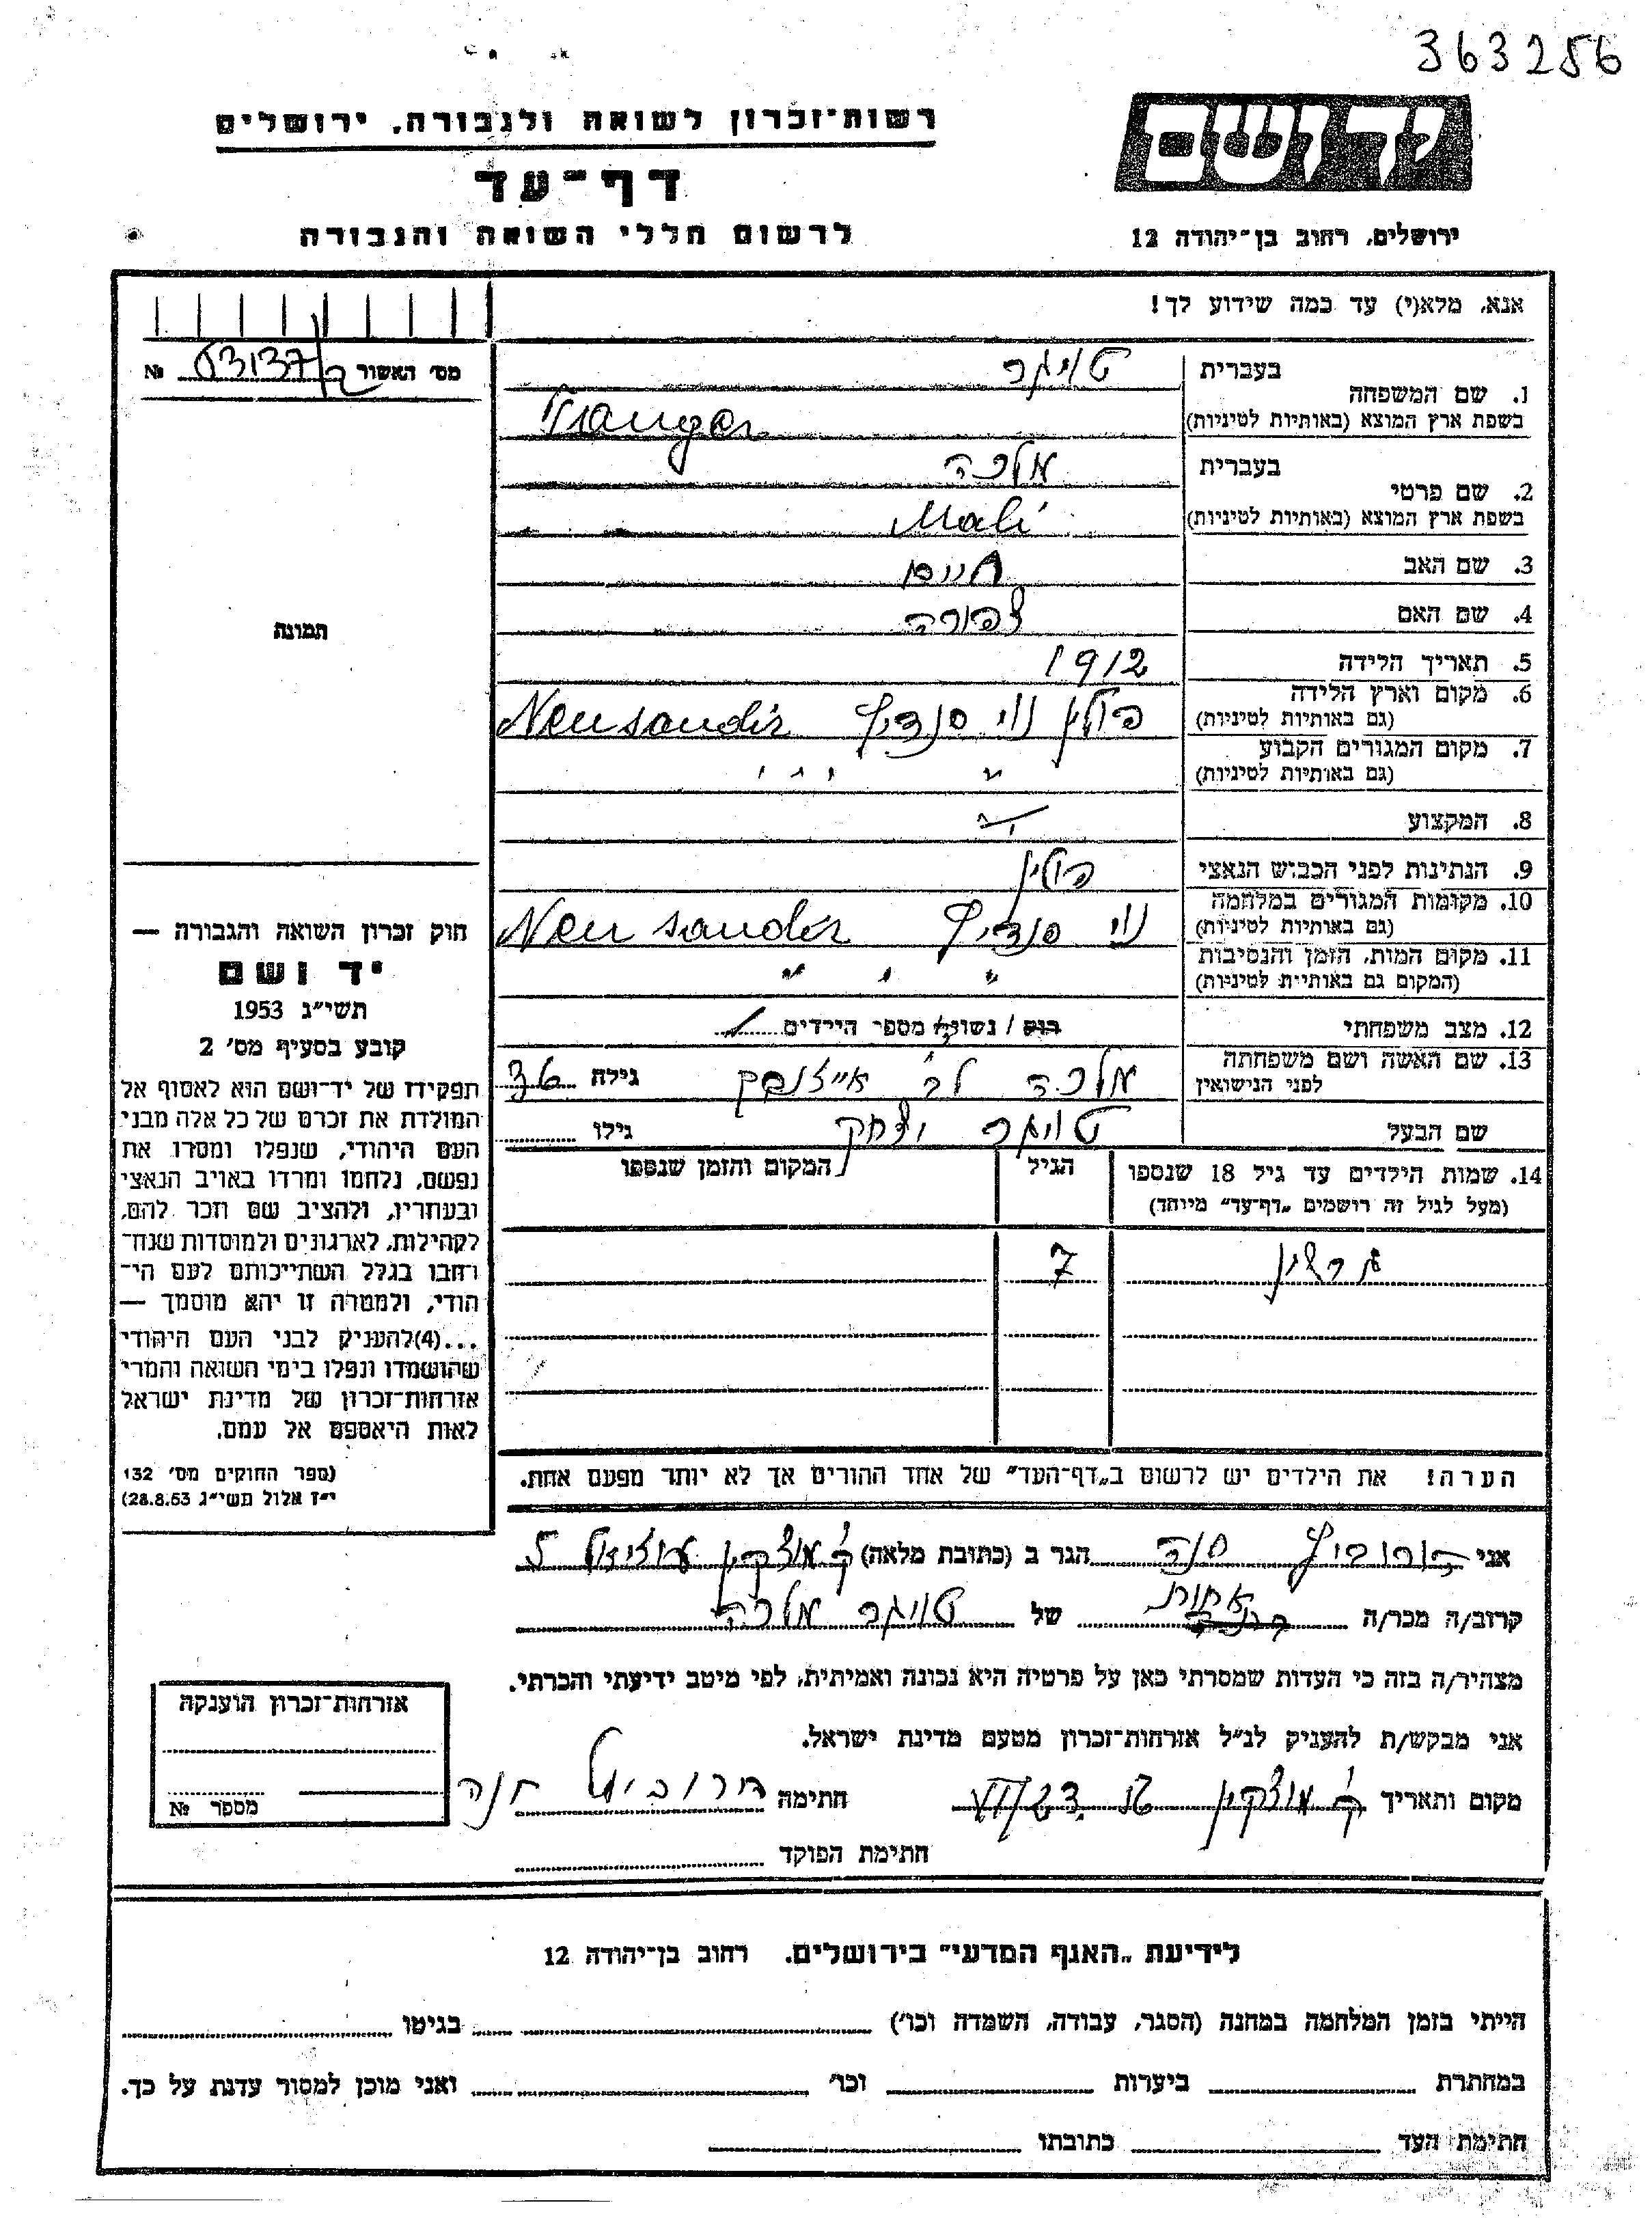 363256
רשות־זכרון לשואה ולגבורה, ירושלים
דף־עד
לרשום חללי השואה והגבורה
יד ושם
ירושלים, רחוב בן־יהודה 12
אנא, מלא(י) עד כמה שידוע לך!
מס׳ האשור № 63137/2
1. שם המשפחה
בעברית
בשפת ארץ המוצא (באותיות לטיניות)
2. שם פרטי
בעברית מלכה
בשפת ארץ המוצא (באותיות לטיניות) Mali
3. שם האב חיים
4. שם האם צפורה
5. תאריך הלידה 1912
6. מקום וארץ הלידה
(גם באותיות לטיניות) פולין נוי סנדיץ Neusandéz
7. מקום המגורים הקבוע
(גם באותיות לטיניות) " " "
8. המקצוע
9. הנתינות לפני הכבוש הנאצי פולין
10. מקומות המגורים במלחמה
(גם באותיות לטיניות) נוי סנדיץ Neu sandéz
11. מקום המות, הזמן והנסיבות
(המקום גם באותיות לטיניות) " " "
12. מצב משפחתי רווק / נשוי/אה מספר הילדים 1
13. שם האשה ושם משפחתה
לפני הנישואין מלכה לב׳ גילה 36
שם הבעל יצחק גילו
14. שמות הילדים עד גיל 18 שנספו
(מעל לגיל זה רושמים „דף־עד״ מיוחד)
הגיל
המקום והזמן שנספו
7
הערה! את הילדים יש לרשום ב„דף־העד״ של אחד ההורים אך לא יותר מפעם אחת.
תמונה
חוק זכרון השואה והגבורה —
יד ושם
תשי״ג 1953
קובע בסעיף מס׳ 2
תפקידו של יד־ושם הוא לאסוף אל
המולדת את זכרם של כל אלה מבני
העם היהודי, שנפלו ומסרו את
נפשם, נלחמו ומרדו באויב הנאצי
ובעוזריו, ולהציב שם וזכר להם,
לקהילות, לארגונים ולמוסדות שנח־
רבו בגלל השתייכותם לעם הי־
הודי, ולמטרה זו יהא מוסמך —
...(4)להעניק לבני העם היהודי
שהושמדו ונפלו בימי השואה והמרי
אזרחות־זכרון של מדינת ישראל
לאות היאספם אל עמם.
(ספר החוקים מס׳ 132
י״ז אלול תשי״ג 28.8.53)
אני הורוביץ חנה הגר ב (כתובת מלאה) ק׳ מוצקין עוזיאל 5
קרוב/ה מכר/ה אחות של מלכה
מצהיר/ה בזה כי העדות שמסרתי כאן על פרטיה היא נכונה ואמיתית, לפי מיטב ידיעתי והכרתי.
אני מבקש/ת להעניק לנ״ל אזרחות־זכרון מטעם מדינת ישראל.
מקום ותאריך ק׳ מוצקין חתימה הורוביץ חנה
חתימת הפוקד
אזרחות־זכרון הוענקה
מספר №
לידיעת „האגף המדעי״ בירושלים. רחוב בן־יהודה 12
הייתי בזמן המלחמה במחנה (הסגר, עבודה, השמדה וכו׳) בגיטו
במחתרת ביערות וכו׳ ואני מוכן למסור עדות על כך.
חתימת העד כתובתו